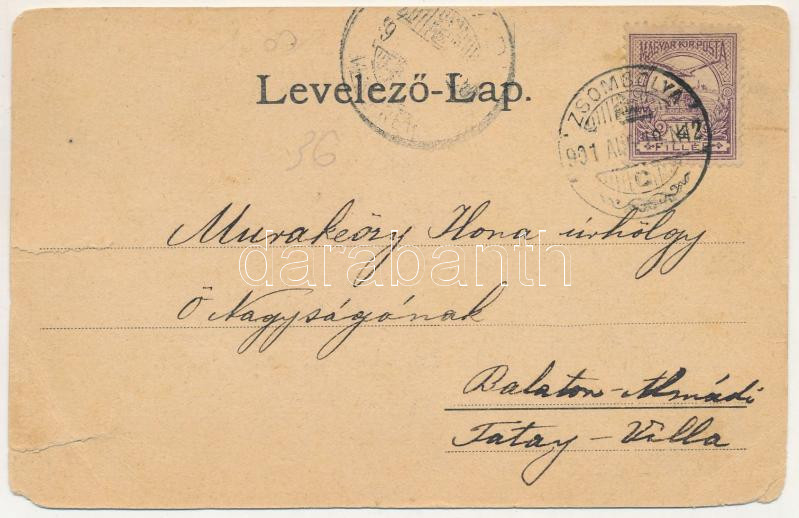 MAGYAR KIR. POSTA
FILLÉR
ZSOMBOLYA
901 AUG 18 N12
C
Levelező-Lap.
36
Murakeőzy Ilona úrhölgy
Ő Nagyságának
Balaton-Almádi
Tátay-Villa
darabanth